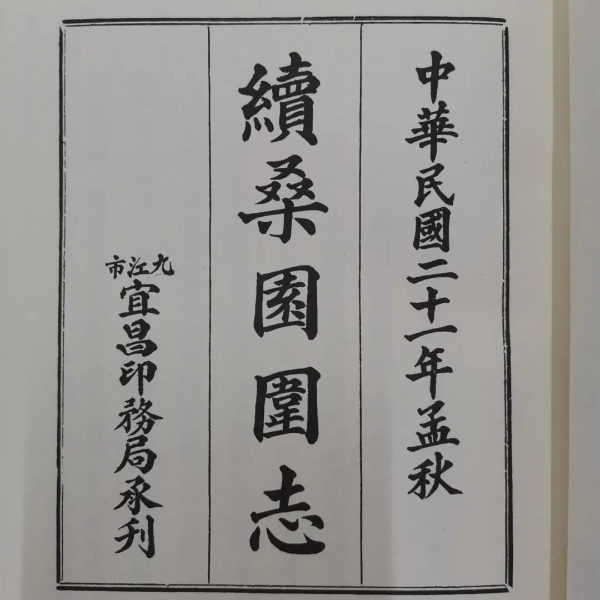 中華民國二十一年孟秋
續桑園圍志
九江市
宜昌印務局承刋